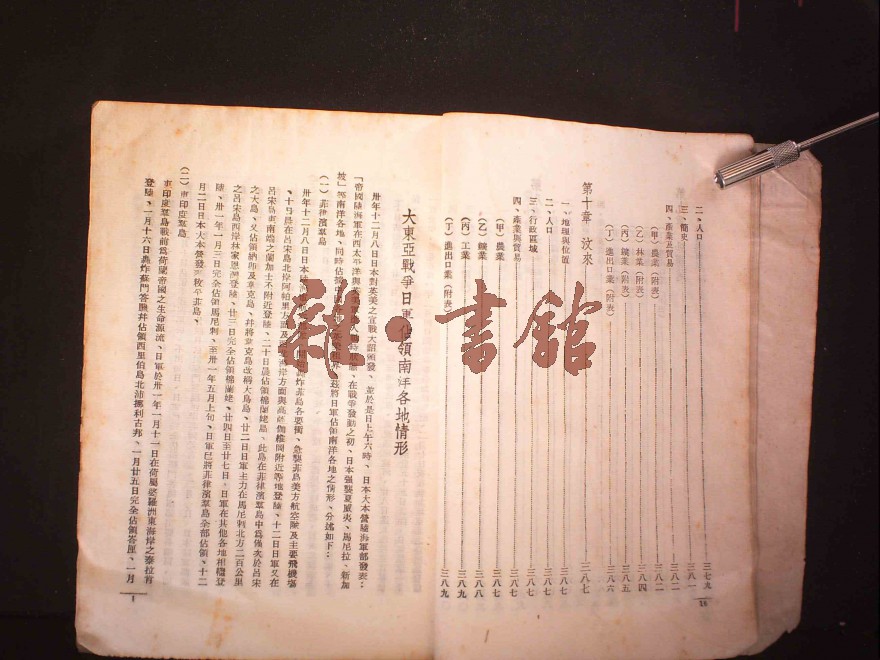 二、人口……三七九
三、簡史……三八一
四、產業及貿易……三八二
(甲)農業(附表)……三八二
(乙)林業(附表)……三八四
(丙)鑛業(附表)……三八五
(丁)進出口業(附表)……三八六
第十章 汶來……三八七
一、地理與位置……三八七
二、人口……三八七
三、行政區域……三八七
四、產業與貿易……三八七
(甲)農業……三八七
(乙)鑛業……三八八
(丙)工業……三八九
(丁)進出口業(附表)……三八九
16
大東亞戰爭日軍佔領南洋各地情形
卅年十二月八日日本對英美之宣戰大詔頒發、並於是日上午六時、日本大本營陸海軍部發表:
「帝國陸海軍在西太平洋與英美軍、在戰爭發動之初、日本強襲夏威夷、馬尼拉、新加
坡」等南洋各地、同時佔、茲將日軍佔領南洋各地之情形、分述如下:
(一)菲律濱羣島
卅年十二月八日日本陸炸菲島各要衝、急襲菲島美方航空隊及主要飛機塲
、十日晨在呂宋島北岸阿帕里方面及岸方面與高附近等地登陸、十二日日軍又在
呂宋島東南端之蘭加士不附近登陸、二十日晨佔領棉蘭荖島、此島在菲律濱羣島中爲僅次於呂宋
之大島、又佔領納卯及韋克島、幷將韋克島改稱大鳥島、廿二日日軍主力在馬尼剌北方二百公里
之呂宋島西岸林家恩灣登陸、廿三日完全佔領棉蘭荖、廿四日至廿七日、日軍在其他各地相繼登
陸、卅一年一月三日完全佔領馬尼剌、至卅一年五月上旬、日軍已將菲律濱羣島全部佔領、十二
月二日日本大本營發表敉平菲島、
(二)東印度羣島
東印度羣島戰前爲荷蘭帝國之生命源流、日軍於卅一年一月十一日在荷屬婆羅洲東海岸之泰拉肯
登陸、一月十六日轟炸蘇門答臘幷佔領西里伯島北浦挪利古邦、一月廿五日完全佔領峇厘、一月
1
雜·書館